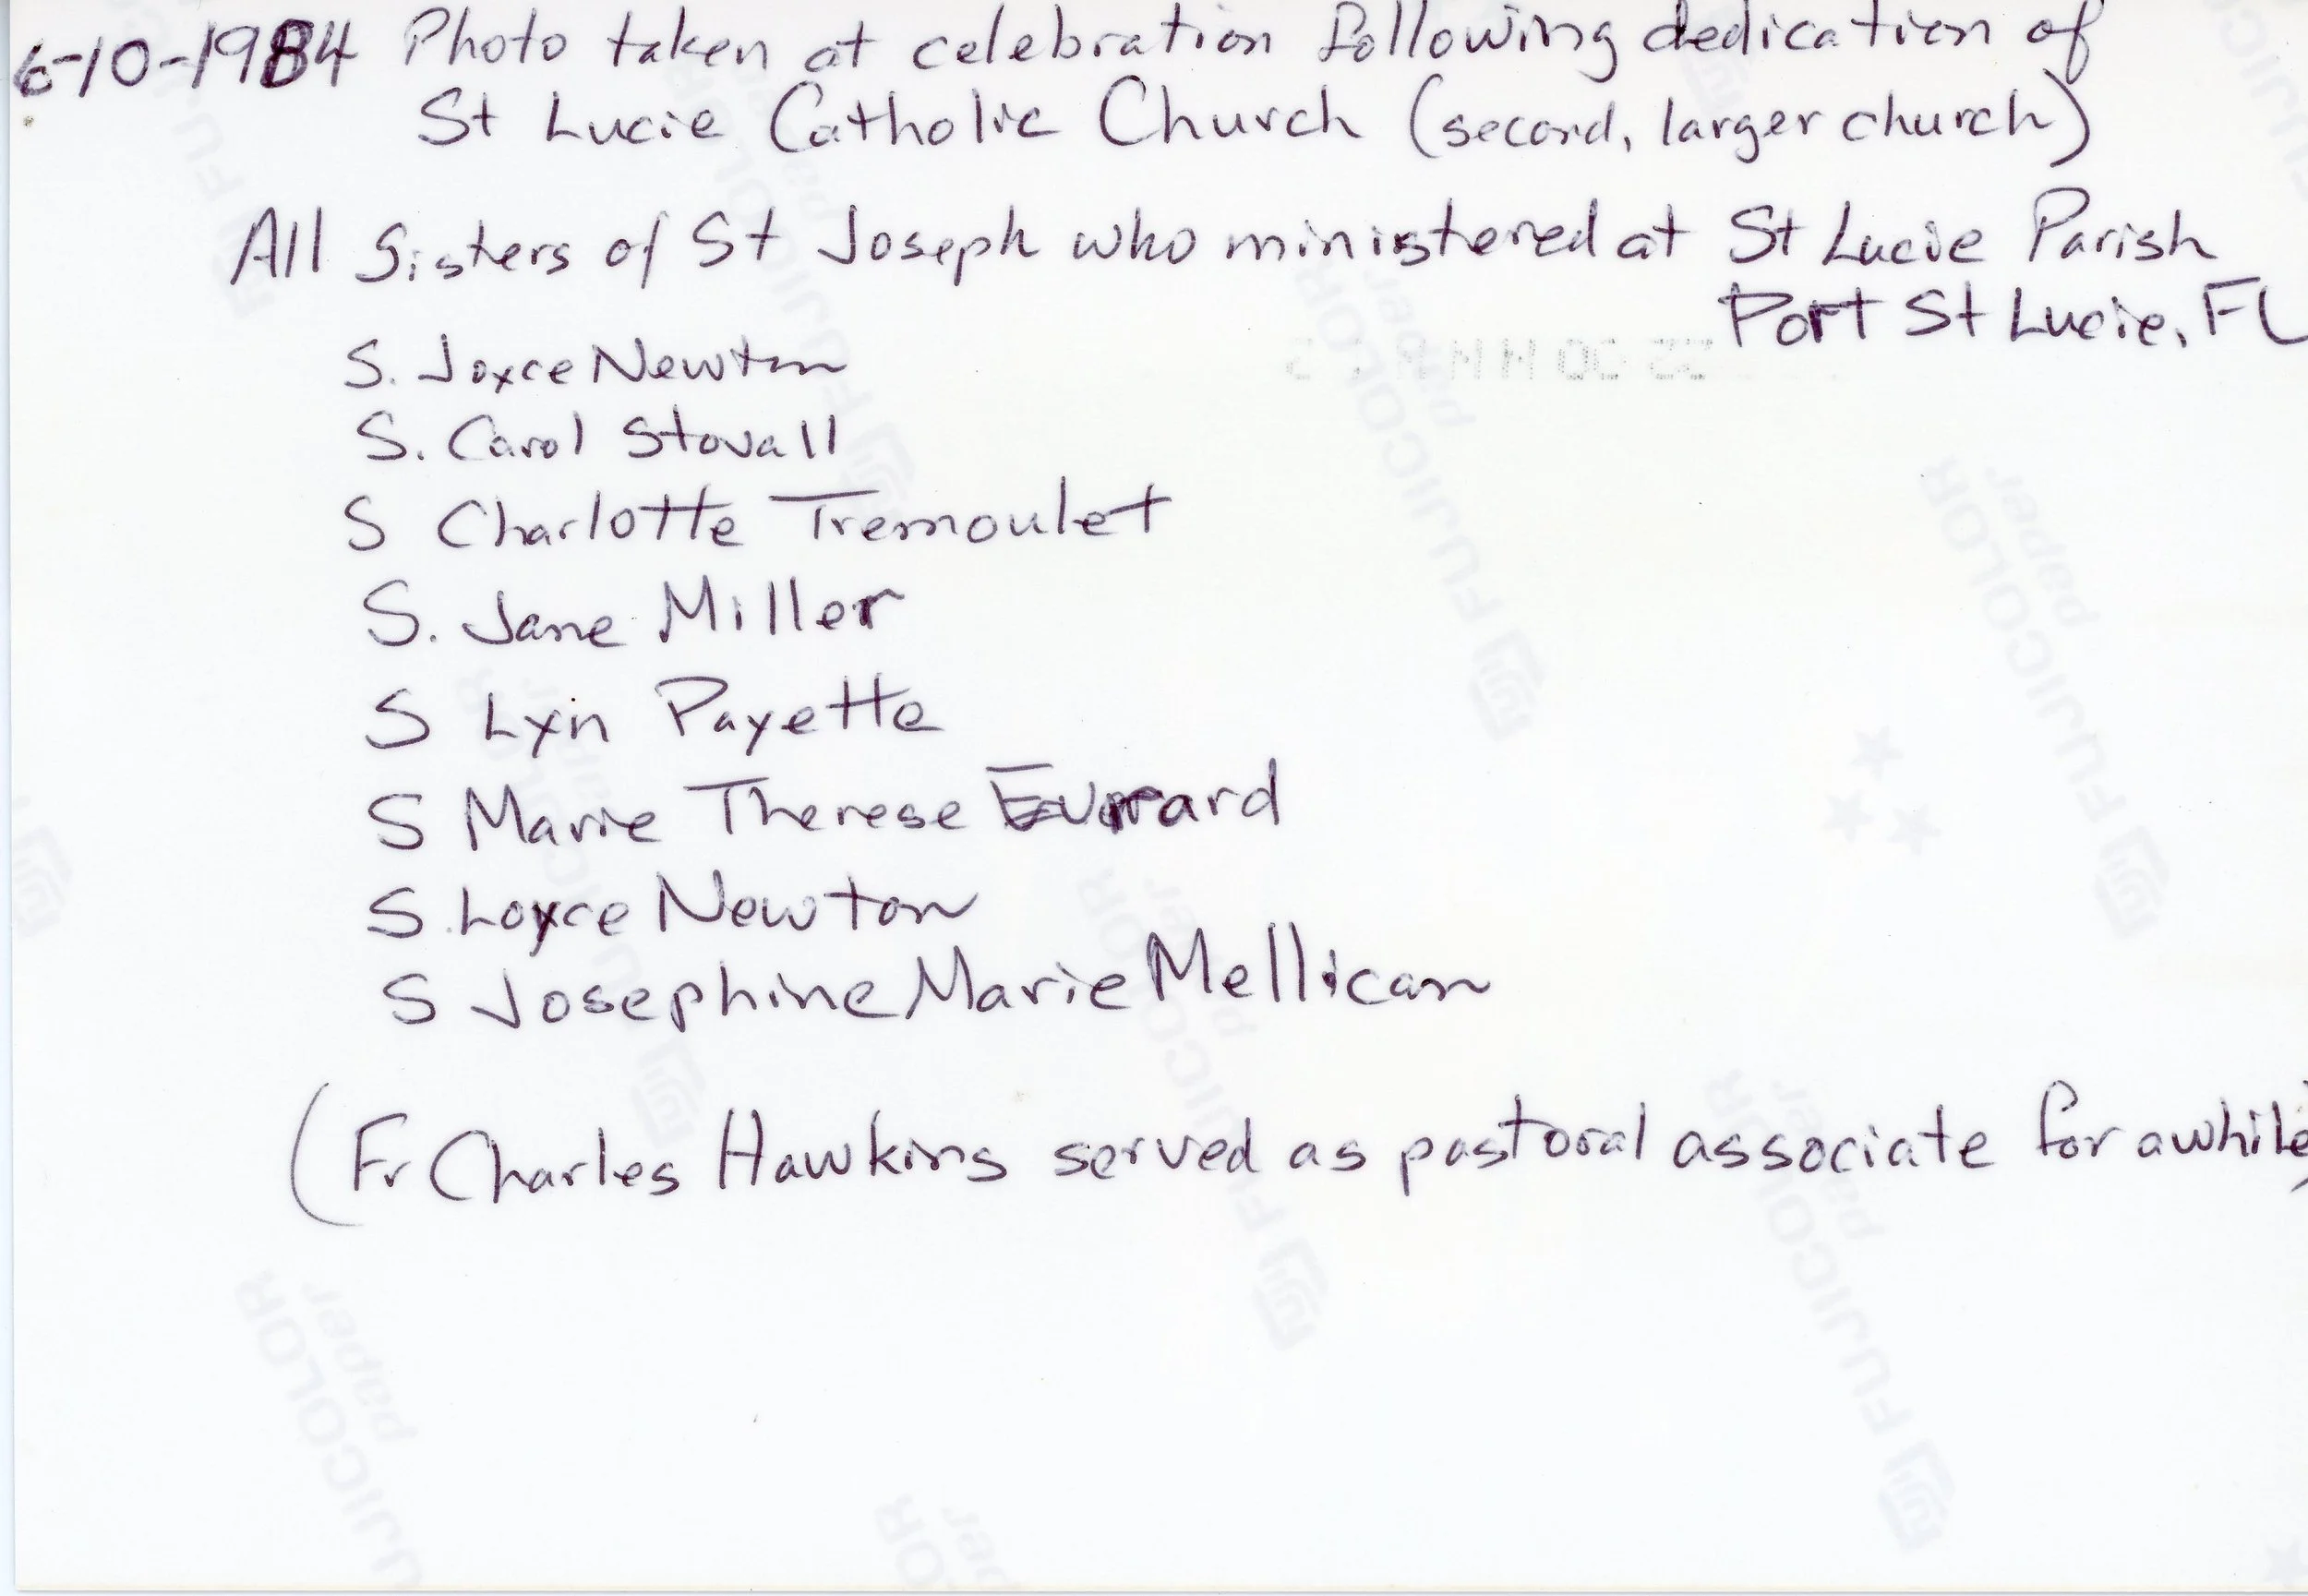 6-10-1984 Photo taken at celebration following dedication of
St Lucie Catholic Church (second, larger church)
All Sisters of St Joseph who ministered at St Lucie Parish
Port St Lucie, FL
S. Joyce Newton
S. Carol Stovall
S Charlotte Tremoulet
S. Jane Miller
S Lyn Payette
S Marie Therese
S. Loyce Newton
S Josephine Marie Mellican
(Fr Charles Hawkins served as pastoral associate for awhile)
FUJICOLOR
paper